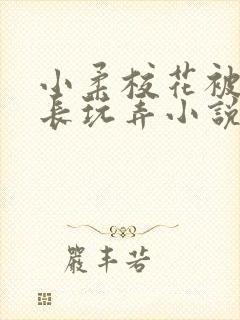 小柔校花被
长玩弄小說
嚴丰若